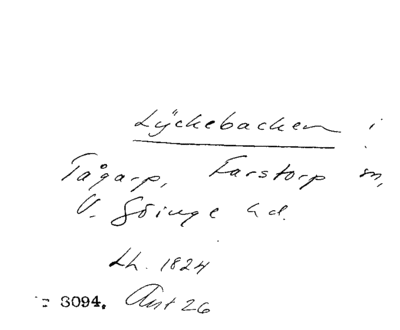 Lyckebacken i
Tågarp, Farstorp sn,
V. Göinge hd.
Lh. 1824
3094. Ant 26